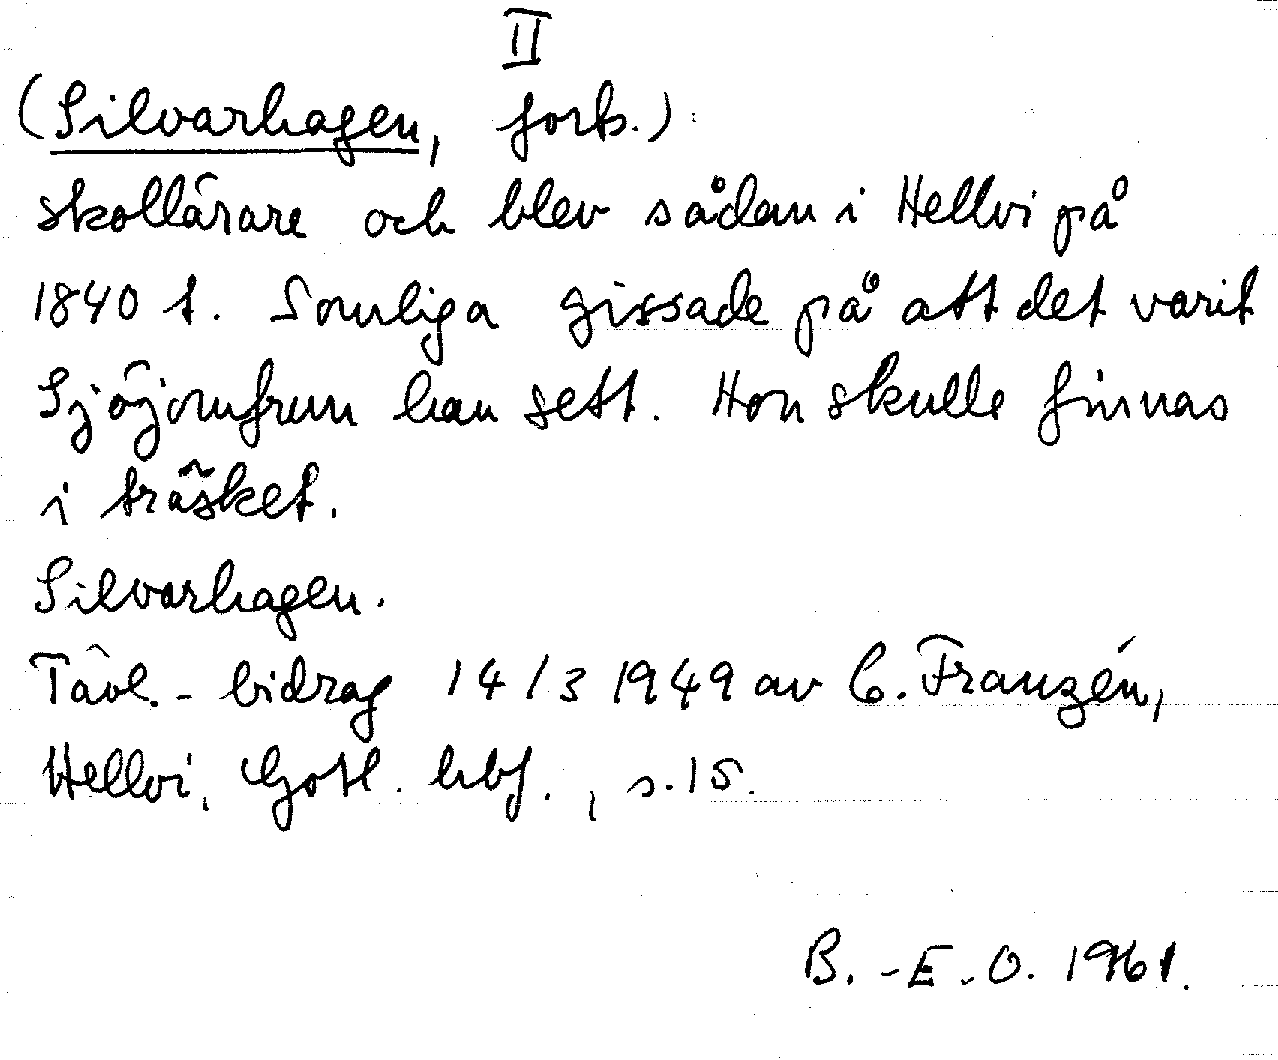 II
(Silvarhagen, forts.)
skollärare och blev sådan i Hellvi på
1840 t. Somliga gissade på att det varit
Sjöjomfrun han sett. Hon skulle finnas
i träsket.
Silvarhagen.
Tävl.-bidrag 14/3 1949 av C. Franzén,
Hellvi, Gotl. hbf., s. 15.
B.-E. O. 1961.